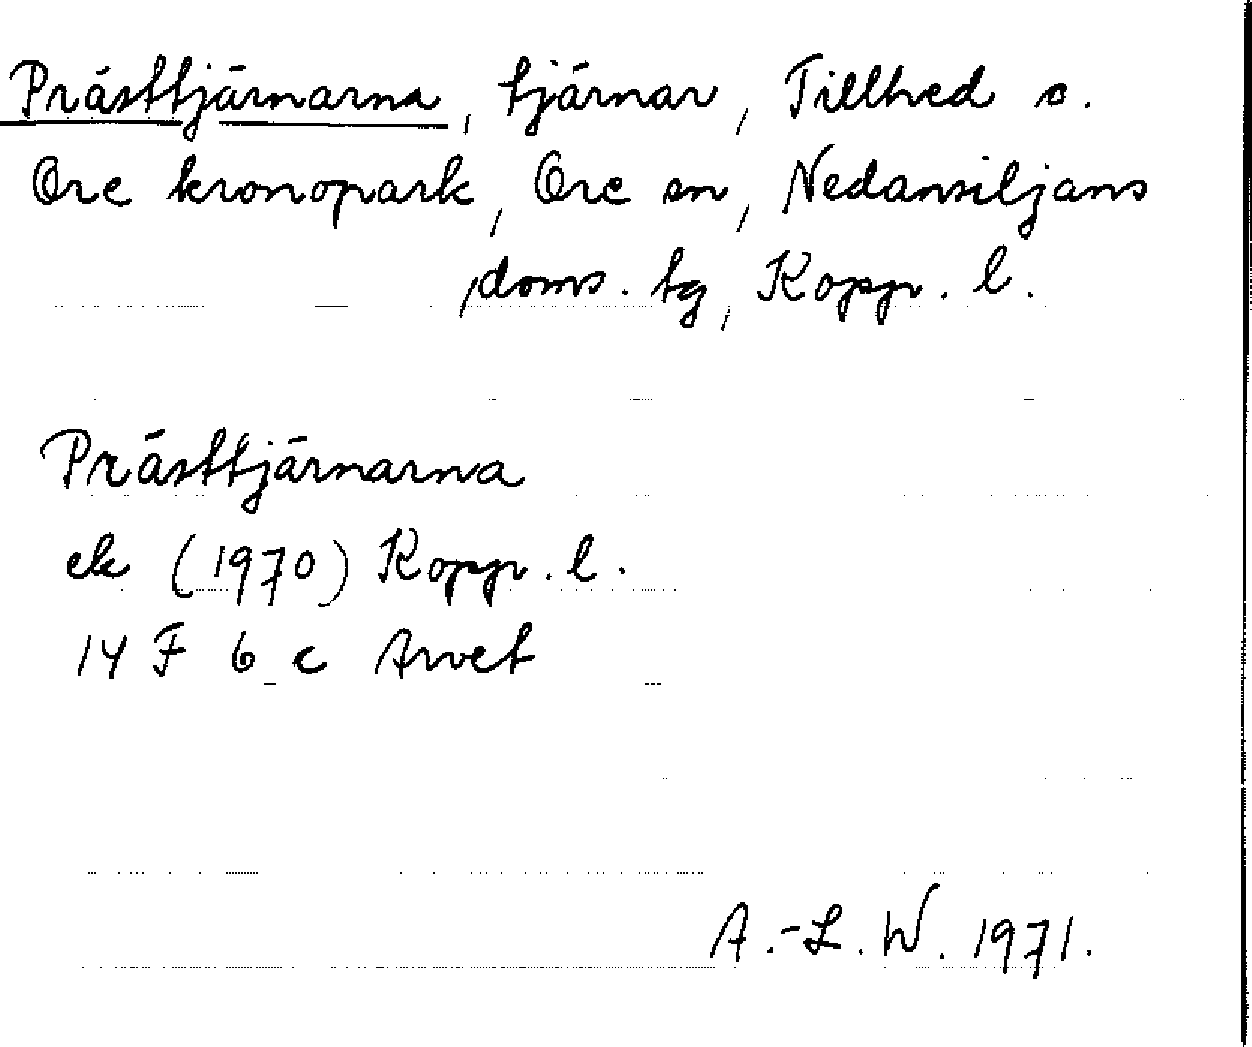 Prästtjärnarna, tjärnar, Tillhed o.
Ore kronopark, Ore sn, Nedansiljans
doms. tg, Kopp. l.
Prästtjärnarna
ek (1970) Kopp. l.
14 F 6 c Arvet
A.-L. W. 1971.